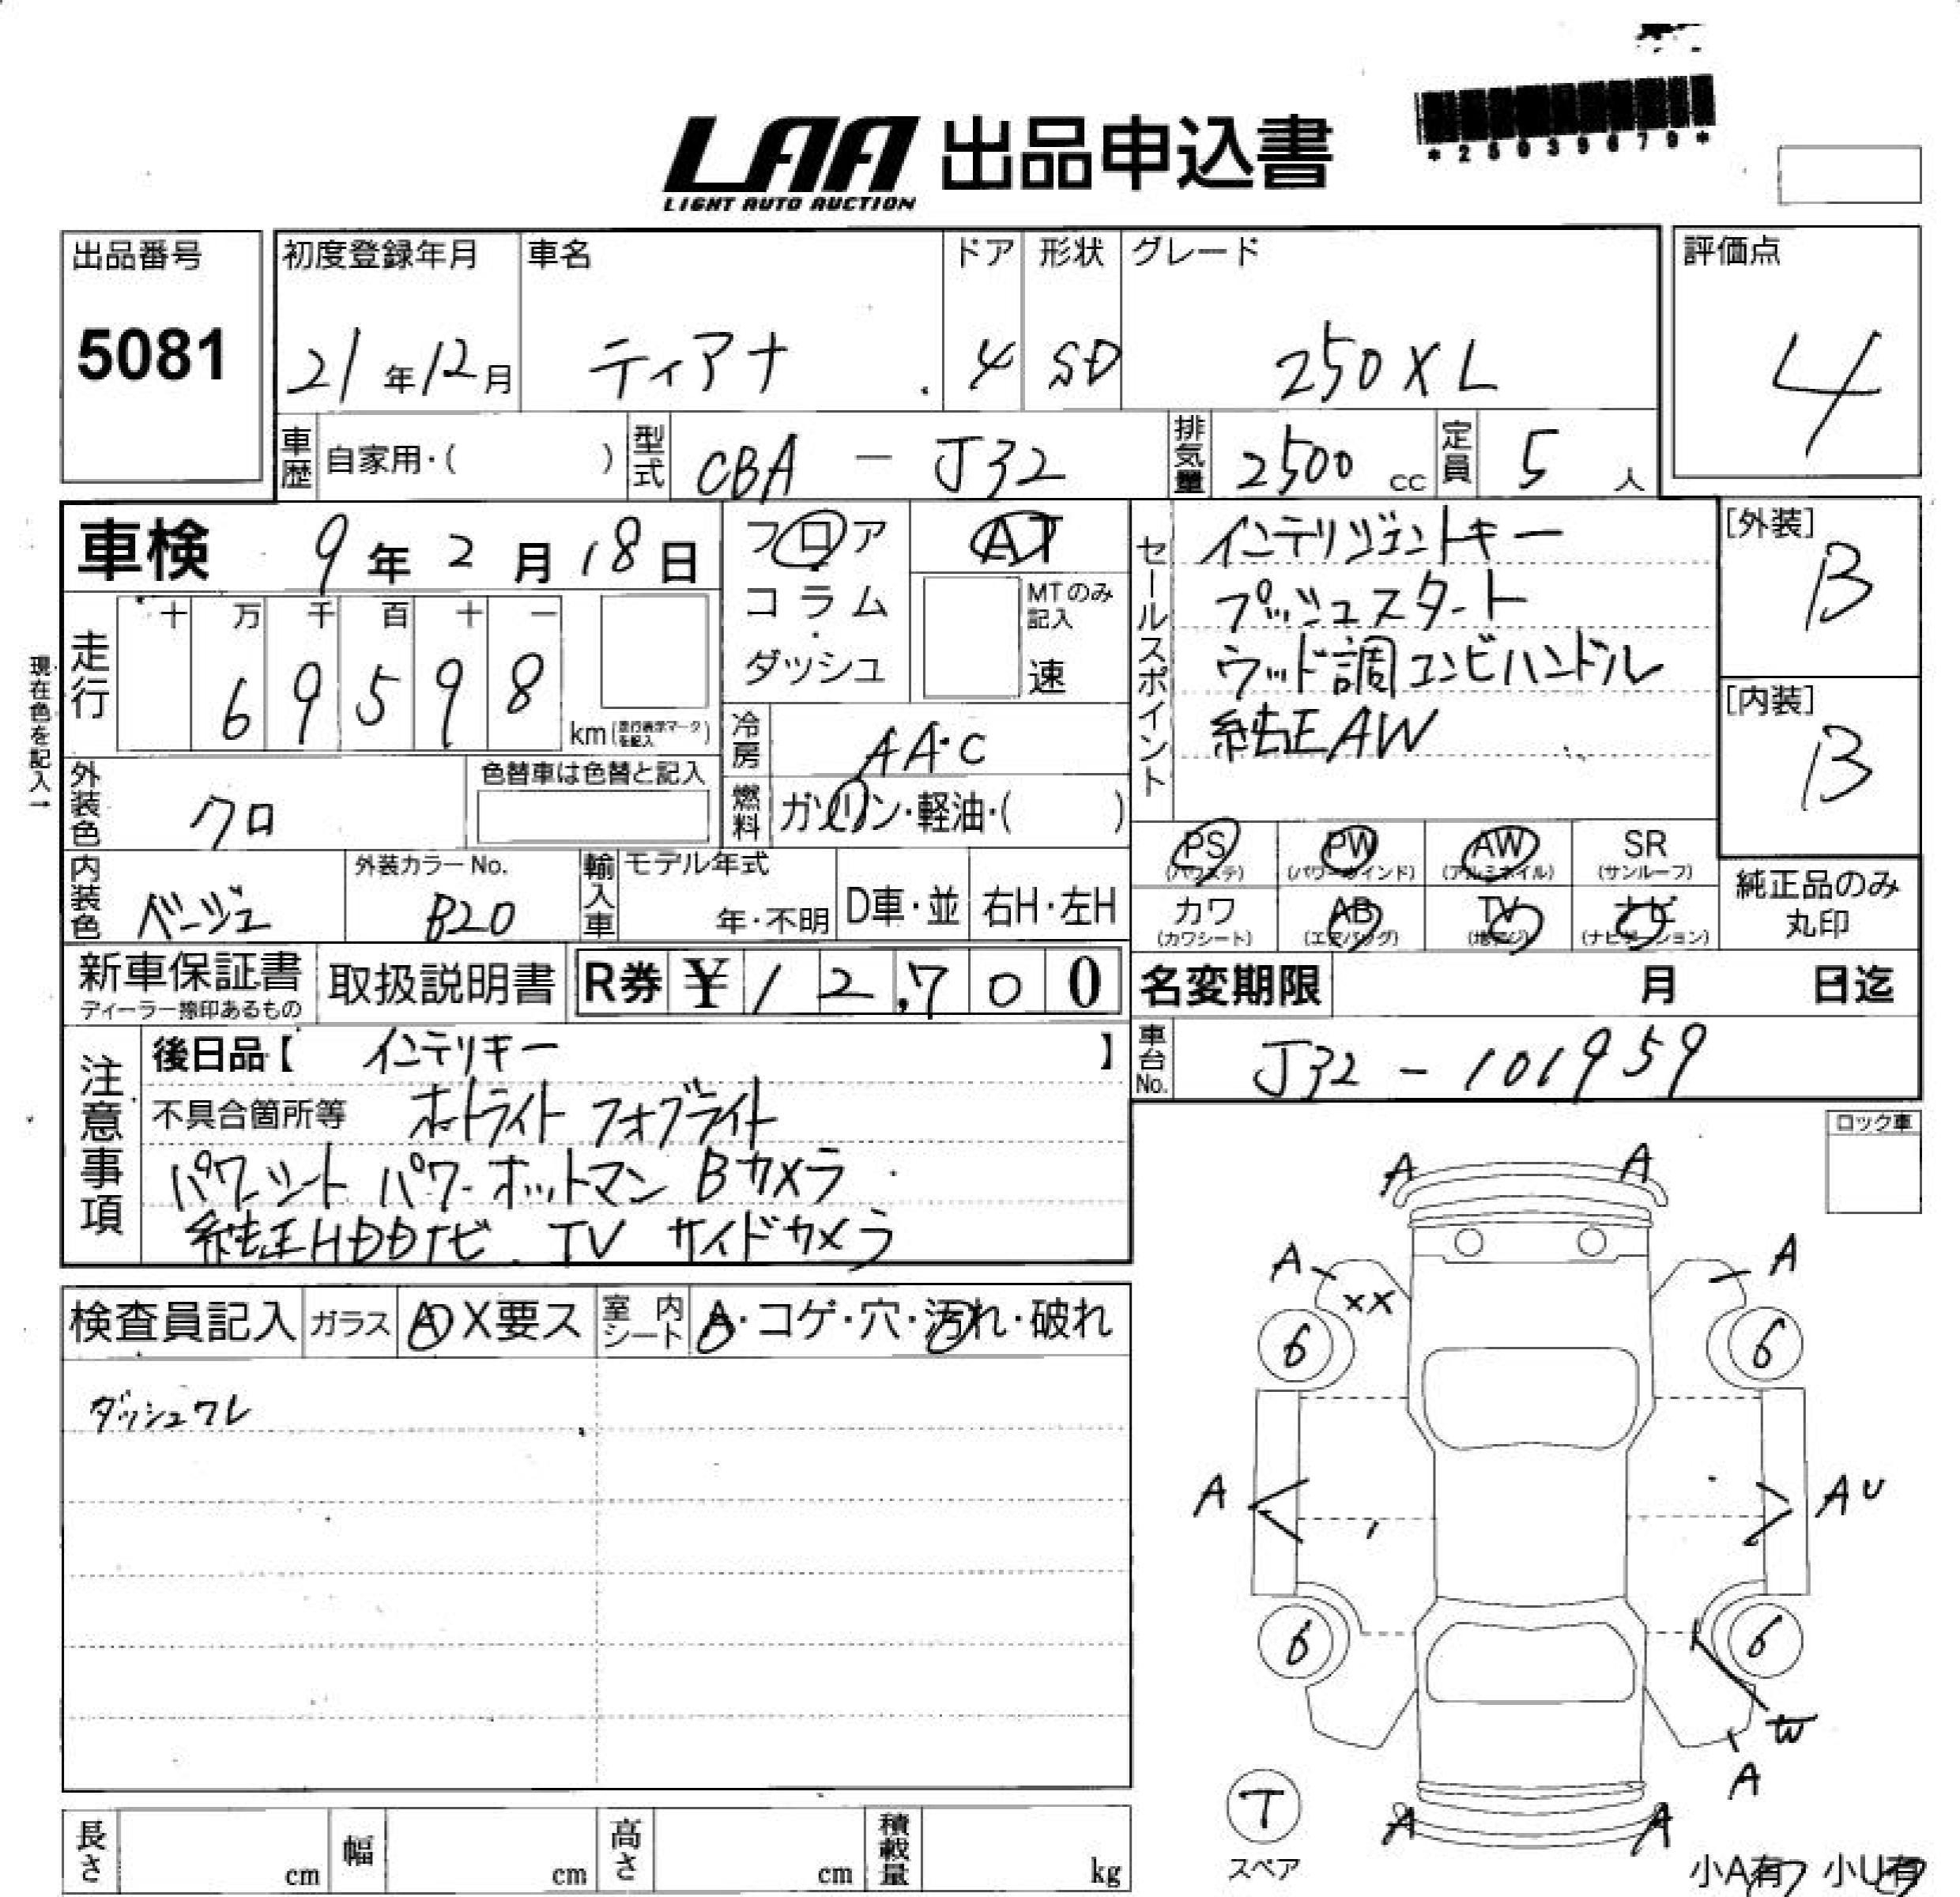 LAA 出品申込書
LIGHT AUTO AUCTION
*25039679*
出品番号
5081
初度登録年月
21年12月
車名
ティアナ
ドア
4
形状
SD
グレード
250XL
評価点
4
車歴 自家用・( )
型式 CBA － J32
排気量 2500 cc
定員 5 人
車検 9年2月18日
フロア
コラム・
ダッシュ
AT
MTのみ記入
速
セールスポイント
インテリジェントキー
プッシュスタート
ウッド調コンビハンドル
純正AW
[外装]
B
[内装]
B
現在色を記入→
走行
十 万 千 百 十 一
6 9 5 9 8
km(走行表示マークを記入)
冷房 AA・C
燃料 ガソリン・軽油・( )
外装色 クロ
色替車は色替と記入
内装色 ベージュ
外装カラーNo.
B20
輸入車 モデル年式
年・不明 D車・並 右H・左H
PS (パワステ) PW (パワーウインド) AW (アルミホイル) SR (サンルーフ)
カワ (カワシート) AB (エアバッグ) TV (地デジ) ナビ (ナビゲーション)
純正品のみ丸印
新車保証書
ディーラー捺印あるもの
取扱説明書
R券 ¥12,700
名変期限 月 日迄
車台No. J32 - 101959
注意事項
後日品【 インテリキー 】
不具合箇所等 オートライト フォグライト
パワーシート パワーオットマン Bカメラ
純正HDDナビ.TV サイドカメラ
ロック車
検査員記入 ガラス A X要ス 室内シート A・コゲ・穴・汚れ・破れ
ダッシュワレ
A A
A A
XX
6 6
A AU
6 6
W
A
T
スペア
A A
小A有 小U有
長さ cm 幅 cm 高さ cm 積載量 kg